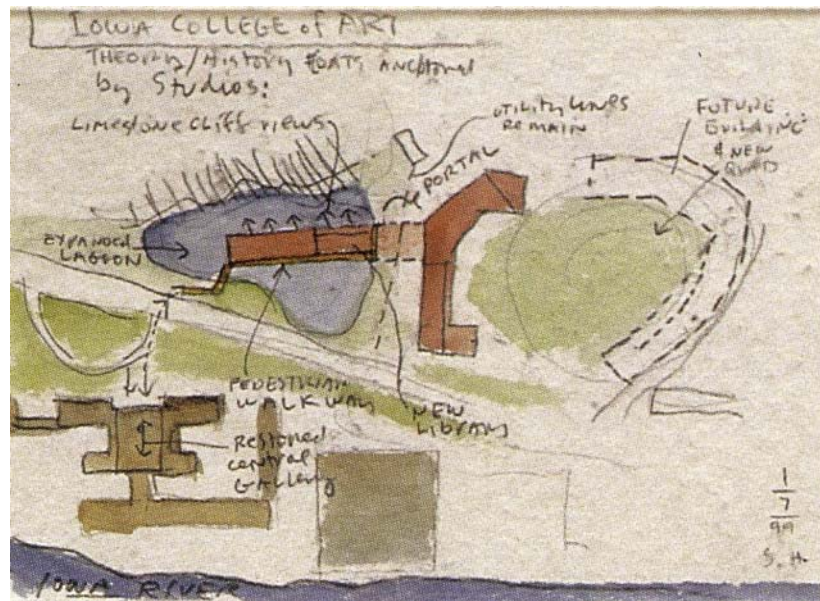 IOWA COLLEGE of ART
THEORY/HISTORY FLOATS ANCHORED
by Studios:
LIMESTONE CLIFF VIEWS
UTILITY LINES
REMAIN
FUTURE
BUILDING
& NEW
QUAD
PORTAL
EXPANDED
LAGOON
PEDESTRIAN
WALKWAY
NEW
LIBRARY
RESTORED
CENTRAL
GALLERY
1
7
99
S.H.
IOWA RIVER